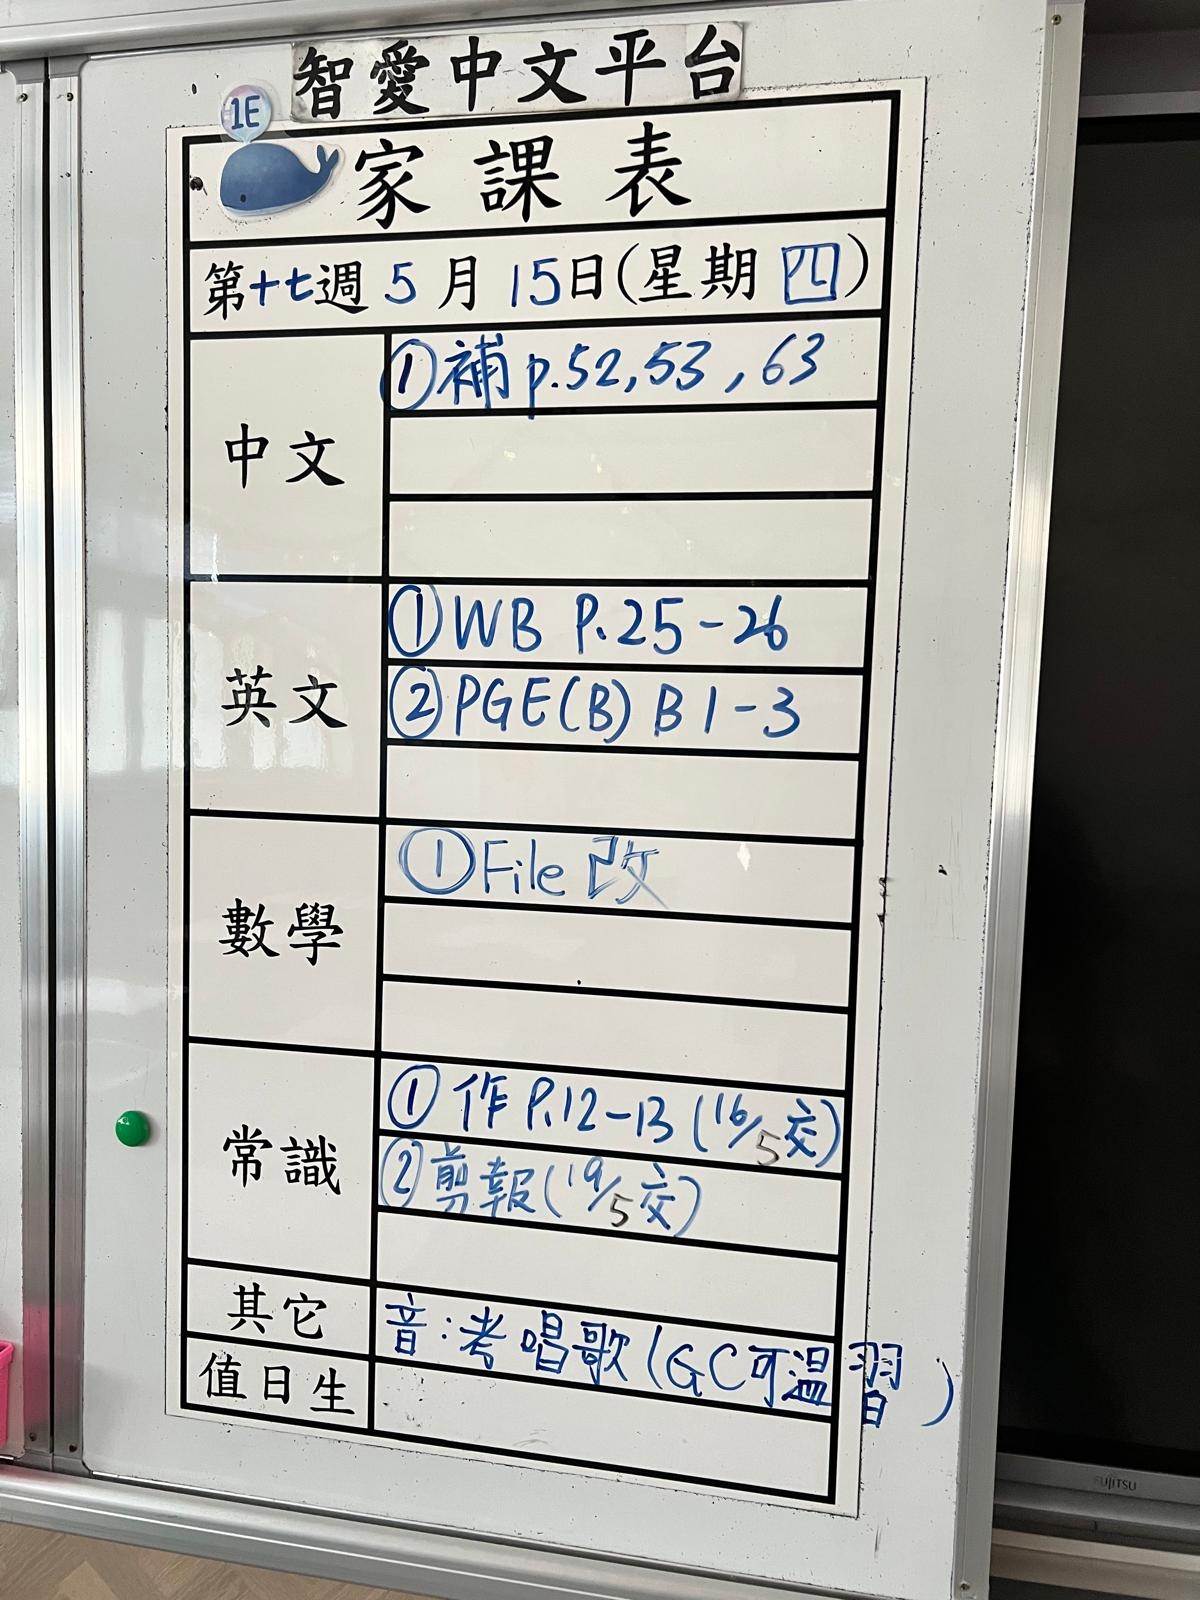 智愛中文平台
1E
家課表
第十七週 5月15日(星期四)
中文
①補 p.52,53,63
英文
①WB P.25-26
②PGE(B) B1-3
數學
①File 改
常識
①作 P.12-13 (16/5交)
②剪報(19/5交)
其它
音:考唱歌(GC可溫習)
值日生
FUJITSU